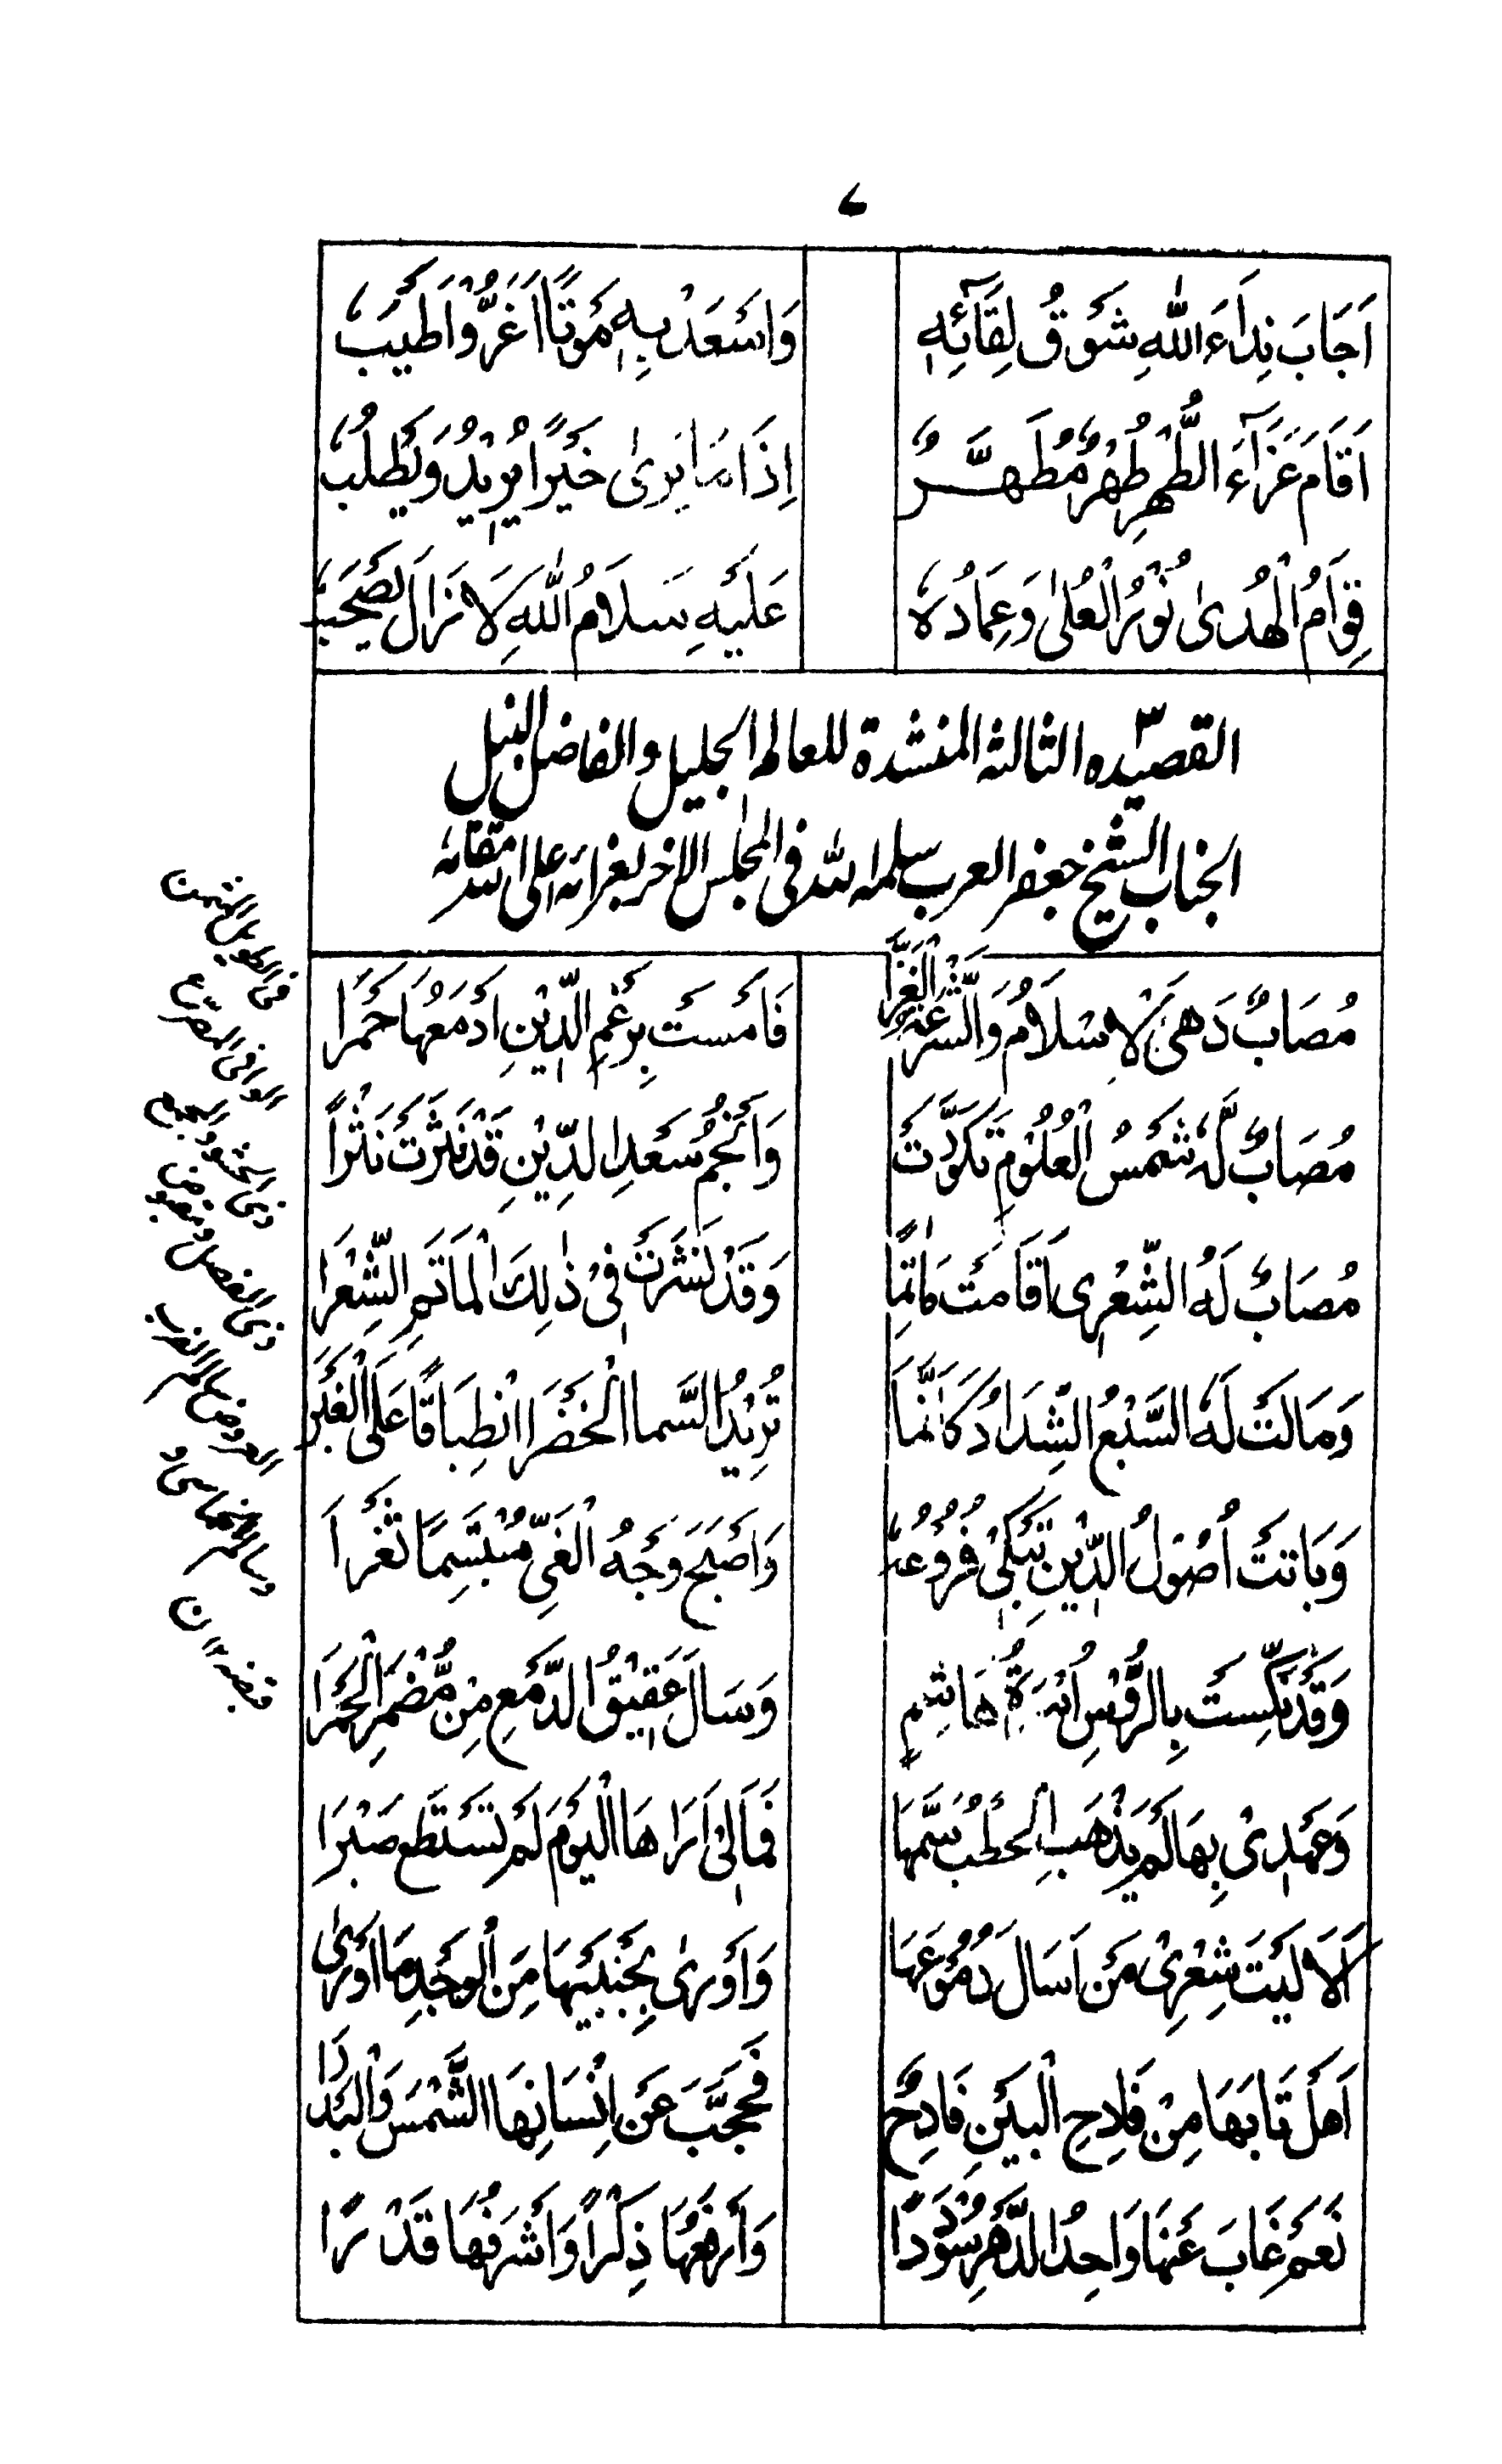 ٧
اَجَابَ نِدَاءَ اللّٰهِ شَوْقُ لِقَائِهِ وَاسْعَدْ بِهِ مَوْتًا اَغَرُّ وَاَطْيَبُ
اَقَامَ عَزَاءَ الطُّهْرِ طُهْرٌ مُطَهَّرٌ اِذَا مَا يَرىٰ خَيْرًا يُرِيْدُ وَيَطْلُبُ
قِوَامُ الْهُدىٰ نُوْرُ الْعُلىٰ وَعِمَادُهُ عَلَيْهِ سَلَامُ اللّٰهِ لَا زَالَ يَصْحَبُ
القصيده الثالثه المنشدة للعالم الجليل والفاضل النبيل
الجناب الشيخ جعفر العرب سلمه الله فى المجلس الاخر بغرائه اعلى الله مقامه
مُصَابٌ دَهىَ الْاِسْلَامَ وَالشِّرْعَةَ الْغَرَّا فَاَمْسَتْ بِرَغْمِ الدِّيْنِ اَدْمُعُهَا حُمْرَا
مُصَابٌ لَهُ شَمْسُ الْعُلُوْمِ تَكَوَّرَتْ وَاَنْجُمُ سَعْدِ الدِّيْنِ قَدْ نُثِرَتْ نَثْرًا
مُصَابٌ لَهُ الشِّعْرى اَقَامَتْ مَاٰتِمًا وَقَدْ نَشَرَتْ فِىْ ذٰلِكَ الْمَاتَمِ الشَّعْرَا
وَمَالَتْ لَهُ السَّبْعُ الشِّدَادُ كَاَنَّمَا تُرِيْدُ السَّما الْخَضْرَا انْطِبَاقًا عَلَى الْغَبْرَا
وَبَاتَتْ اُصُوْلُ الدِّيْنِ تَبْكِىْ فُرُوْعَهُ وَاَصْبَحَ وَجْهُ الْغَىِّ مُبْتَسِمًا ثَغْرَا
وَقَدْ نَكَّسَتْ بِالرَّؤُسِ اُسْرَةُ هَاشِمٍ وَسَالَ عَقِيْقُ الدَّمْعِ مِنْ مُضَرِ الْحَمْرَا
وَعَهْدِىْ بِهَا لَمْ يَذْهَبِ الْخَطْبُ سَمَّهَا فَمَا لِىْ اَرَاهَا الْيَوْمَ لَمْ تَسْتَطِعْ صَبْرَا
اَلَا لَيْتَ شِعْرِىْ مَنْ اَسَالَ دُمُوْعَهَا وَاَوْرىٰ بِجَنْبَيْهَا مِنَ الْوَجْدِ مَا اَوْرىٰ
اَهَلْ نَابَهَا مِنْ فَادِحِ الْبَيْنِ فَادِحٌ فَحَجَّبَ عَنْ اِنْسَانِهَا الشَّمْسَ وَالْبَدْرَا
نَعَمْ غَابَ عَنْهَا وَاحِدُ الدَّهْرِ سُوْدَدًا وَاَرْفَعُهَا ذِكْرًا وَاَشْرَفُهَا قَدْرًا